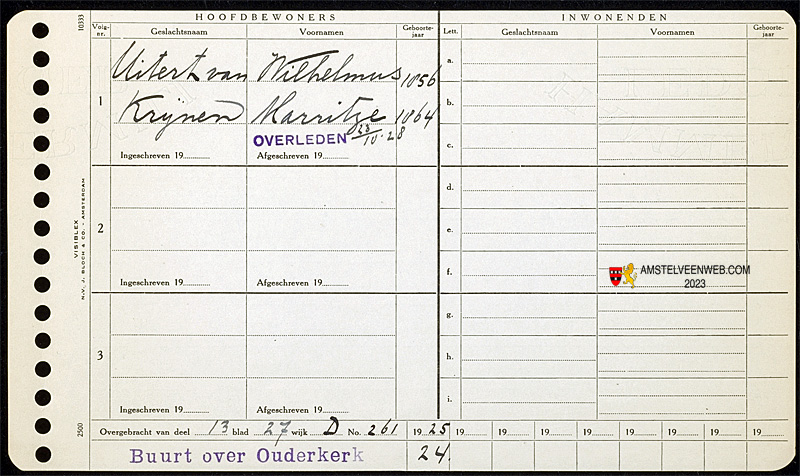 HOOFDBEWONERS
INWONENDEN
Volg-nr. Geslachtsnaam Voornamen Geboorte-jaar
Lett. Geslachtsnaam Voornamen Geboorte-jaar
10333
1
Uitert van Wilhelmus 1856
Krijnen Marritje 1864
OVERLEDEN 23/10-28
Ingeschreven 19 Afgeschreven 19
2
Ingeschreven 19 Afgeschreven 19
3
Ingeschreven 19 Afgeschreven 19
a.
b.
c.
d.
e.
f.
g.
h.
i.
AMSTELVEENWEB.COM
2023
VISIBLEX
N.V. J. BLOCH & CO. - AMSTERDAM
2500
Overgebracht van deel 13 blad 27 wijk D No. 261 19 25 19 19 19 19 19 19 19 19
Buurt over Ouderkerk 24.